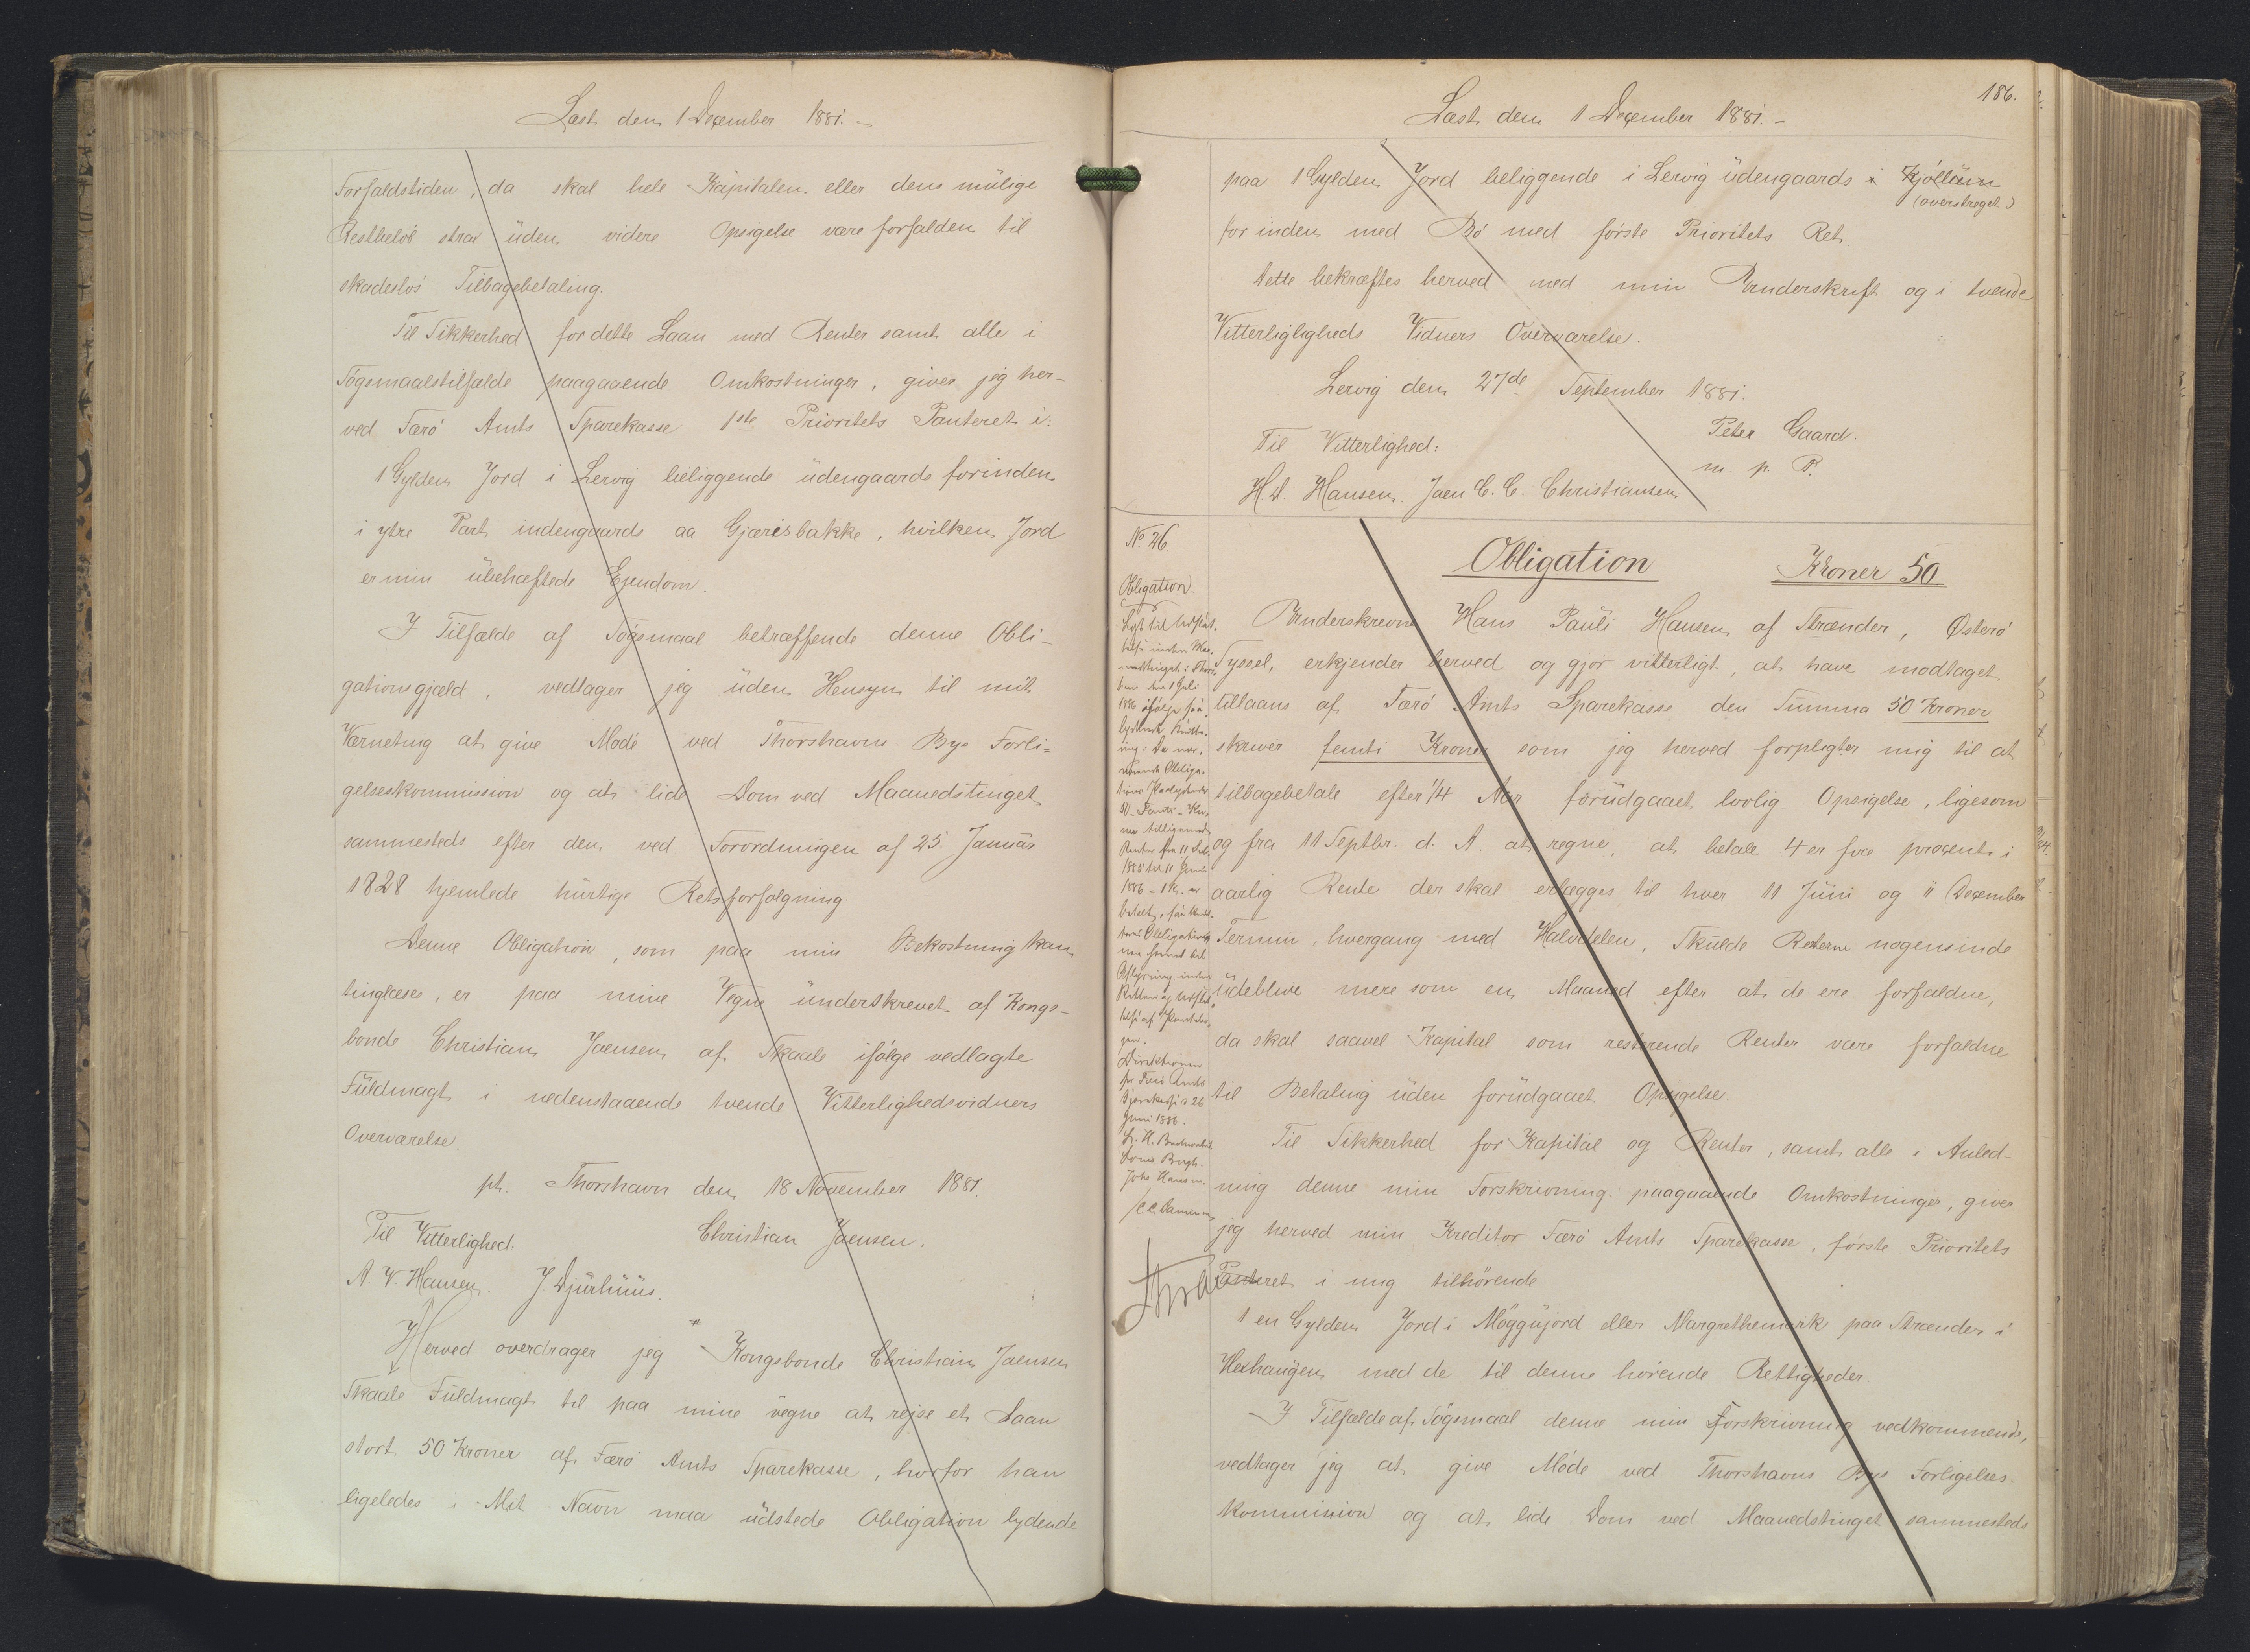 Læst den 1 December 1881.-
Forfaldstiden, da skal hele Kapitalen eller dens mulige
Restbeløb strax uden videre Opsigelse være forfalden til
skadesløs Tilbagebetaling.
Til Sikkerhed for dette Laan med Renter samt alle i
Søgsmaalstilfælde paagaaende Omkostninger, giver jeg her-
ved Færø Amts Sparekasse 1ste Prioritets Panteret i:
1 Gylden Jord i Lervig beliggende udengaards forinden
i ytre Part indengaards aa Gjærisbakke, hvilken Jord
er min ubehæftede Ejendom.
I Tilfælde af Søgsmaal betræffende denne Obli-
gationsgjæld, vedtager jeg uden Hensyn til mit
Værneting at give Møde ved Thorshavns Bys Forli=
gelseskommission og at lide Dom ved Maanedstinget
sammesteds efter den ved Forordningen af 25. Januar
1828 hjemlede hurtige Retsforfølgning.
Denne Obligation, som paa min Bekostning kan
tinglæses, er paa mine Vegne underskrevet af Kongs-
bonde Christian Joensen af Skaale ifølge vedlagte
Fuldmagt i nedenstaaende tvende Vitterlighedsvidners
Overværelse.
pt. Thorshavn den 18 November 1881.
Til Vitterlighed: Christian Joensen.
A. V. Hansen. J. Djurhuus.
Herved overdrager jeg Kongsbonde Christian Joensen
Skaale Fuldmagt til paa mine vegne at rejse et Laan
stort 50 Kroner af Færø Amts Sparekasse, hvorfor han
ligeledes i Mit Navn maa udstede Obligation lydende
186.
Læst den 1 December 1881.-
paa 1 Gylden Jord beliggende i Lervig udengaards i Kjøllum
(overstreget)
for inden med Bø med første Prioritets Ret.
Dette bekræftes herved med min Underskrift og i tvende
Vitterligligheds Vidners Overværelse.
Lervig den 27de September 1881.
Peter Gaard.
Til Vitterlighed: m. p. P.
H. D. Hansen. Joen C. C. Christiansen
No 26.
Obligation Kroner 50
Obligation.
Lyst til Udslet-
telse inden Maa-
nedstinget i Thors-
havn den 1 Juli
1886 ifølge saa-
lydende Kvitte-
ring: Da nær-
værende Obliga-
tions Paalydende
50 - Femti - Kro-
ner tilligemed
Renter fra 11 Decb.
1885 til 11 Juni
1886 - 1 Kr. er
betalt, saa kvit-
teres Obligationen
Aflysning inden
Retten og Udslet-
telse af Pantebo-
gen.
Direktionen
for Færø Amts
Sparekasse 26
Juni 1886.
Underskrevne Hans Pauli Hansen af Strænder, Østerø
Syssel, erkjender herved og gjør vitterligt, at have modtaget
tillaans af Færø Amts Sparekasse den Summa 50 Kroner
skriver femti Kroner som jeg herved forpligter mig til at
tilbagebetale efter 1/4 Aar forudgaaet lovlig Opsigelse, ligesom
og fra 11 Septbr. d. A. at regne, at betale 4 er fire procent i
aarlig Rente der skal erlægges til hver 11 Juni og 11 December
Termin, hvergang med Halvdelen, Skulde Renterne nogensinde
udeblive mere som en Maaned efter at de ere forfaldne,
da skal saavel Kapital som resterende Renter være forfaldne
til Betaling uden forudgaaet Opsigelse.
Til Sikkerhed for Kapital og Renter, samt alle i Anled-
ning denne min Forskrivning paagaaende Omkostninger, giver
jeg herved min Kreditor Færø Amts Sparekasse, første Prioritets
Panteret i mig tilhørende
1 en Gylden Jord i Møggujord eller Margrethemark paa Strænder i
Hexhaugen med de til denne hørende Rettigheder.
I Tilfælde af Søgsmaal denne min Forskrivning vedkommende,
vedtager jeg at give Møde ved Thorshavns Bys Forligelses-
kommission og at lide Dom ved Maanedstinget sammesteds